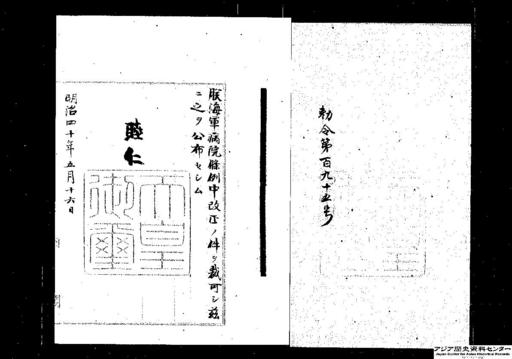 勅令第百九十五号
朕海軍病院條例中改正ノ件ヲ裁可シ茲
ニ之ヲ公布セシム
睦仁
天皇
御璽
明治四十年五月十六日
アジア歴史資料センター
Japan Center for Asian Historical Records